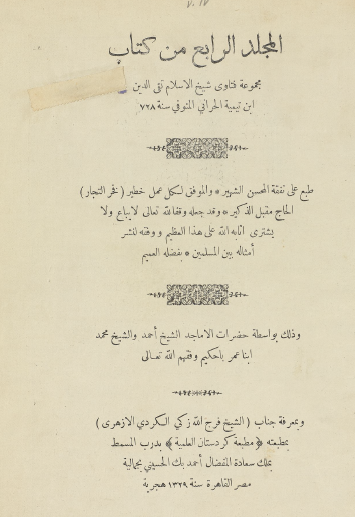 المجلد الرابع من كتاب
مجموعة فتاوى شيخ الاسلام تقى الدين
ابن تيمية الحراني المتوفي سنة ٧٢٨
طبع على نفقة المحسن الشهير * والموفق لكل عمل خطير ( فخر التجار )
الحاج مقبل الذكير * وقد جعله وقفا لله تعالى لا يباع ولا
يشترى اثابه الله على هذا العظيم ووفقه لنشر
أمثاله بين المسلمين * بفضله العميم
وذلك بواسطة حضرات الاماجد الشيخ أحمد والشيخ محمد
ابنا عمر باحكيم وفقهم الله تعالى
وبمعرفة جناب ( الشيخ فرج الله زكي الكردي الازهرى )
بمطبعته ﴿ مطبعة كردستان العلمية ﴾ بدرب المسمط
بملك سعادة المفضال أحمد بك الحسيني بجمالية
مصر القاهرة سنة ١٣٢٩ هجرية